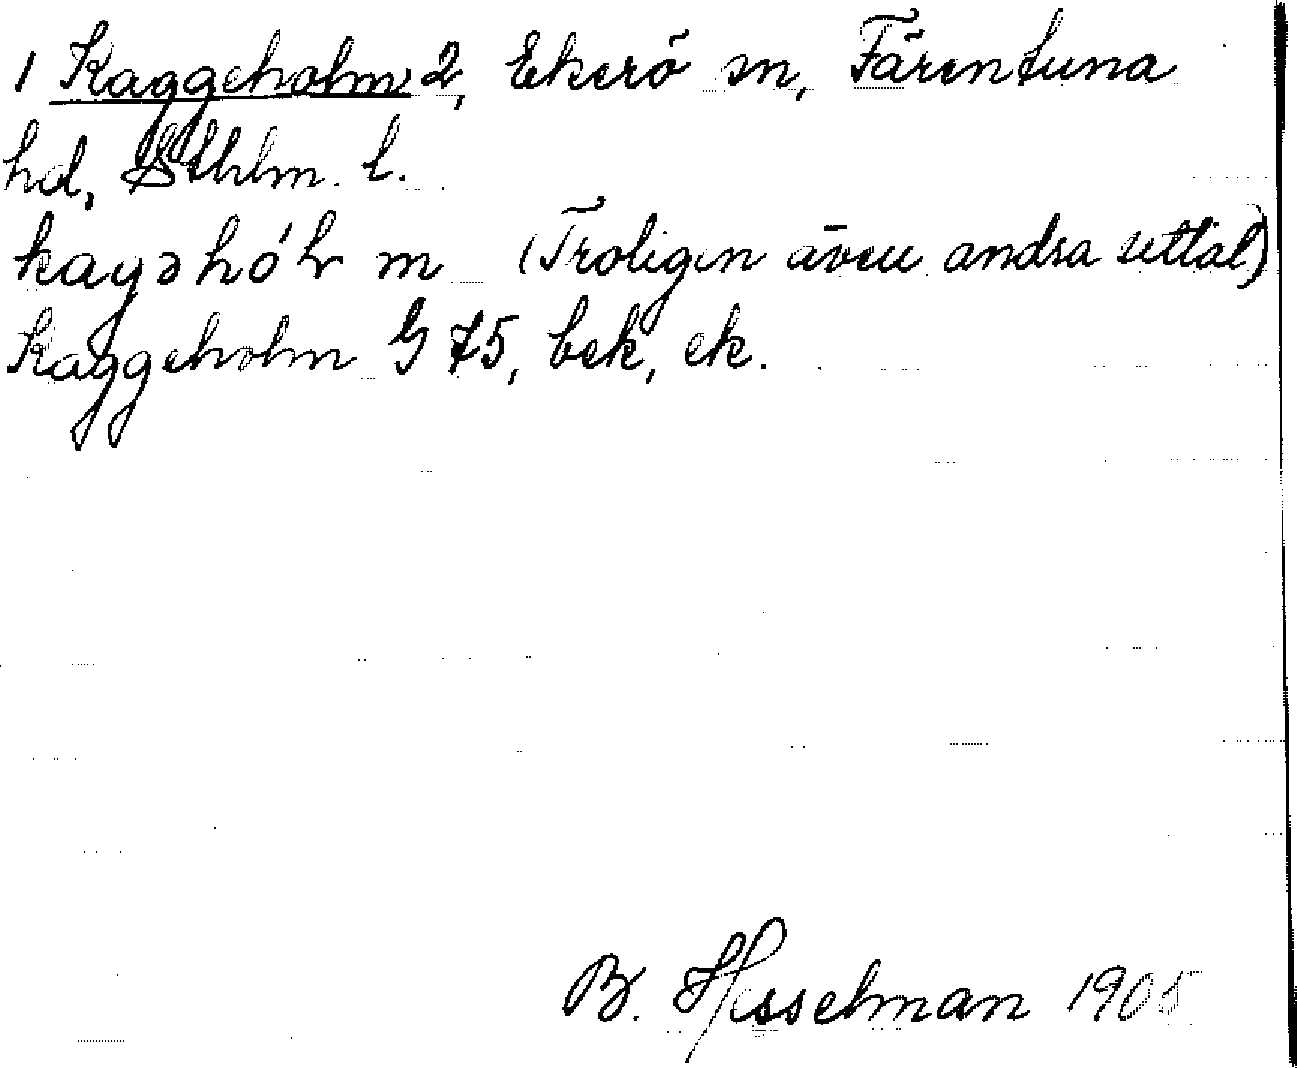 1 Kaggeholm 2, Ekerö sn, Färentuna
hd, Sthlm. l.
kagəhól m (Troligen även andra uttal)
Kaggeholm G 75, bek, ek.
B. Hesselman 1905